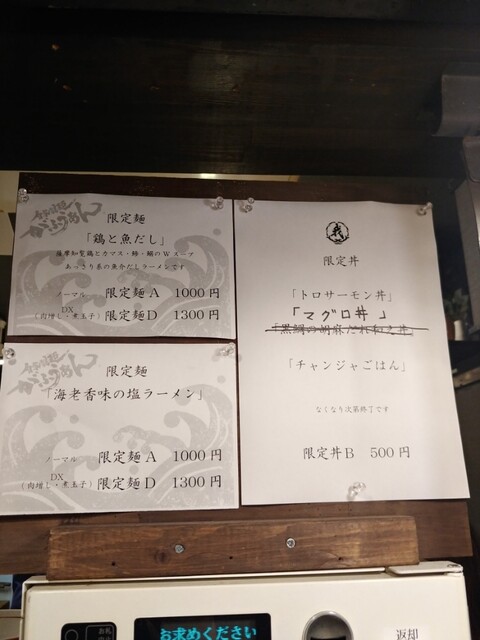 限定麺
「鶏と魚だし」
薩摩知覧鶏とカマス・鯵・鯛のWスープ
あっさり系の魚介だしラーメンです
ノーマル 限定麺A 1000円
DX
(肉増し・煮玉子) 限定麺D 1300円
限定麺
「海老香味の塩ラーメン」
ノーマル 限定麺A 1000円
DX
(肉増し・煮玉子) 限定麺D 1300円
我
限定丼
「トロサーモン丼」
「マグロ丼 」
「黒鯛の胡麻だれ和え丼」
「チャンジャごはん」
なくなり次第終了です
限定丼B 500円
お求めください
お札
返却